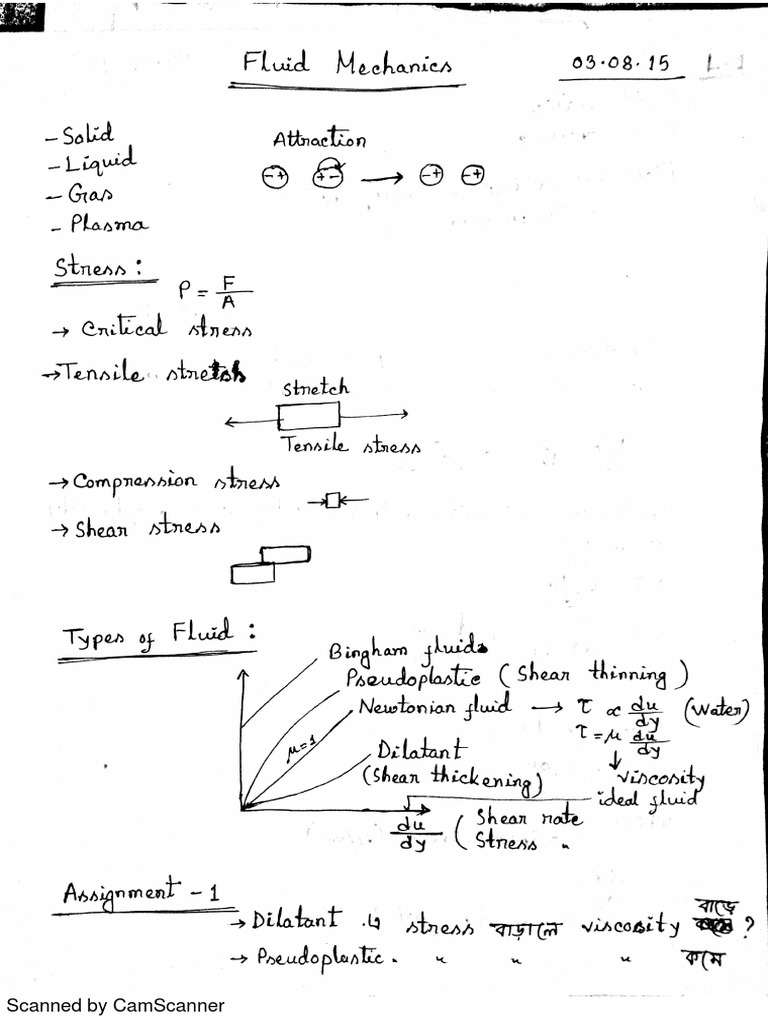 Fluid Mechanics
03.08.15 L-1
- Solid
- Liquid
- Gas
- Plasma
Attraction
-+ +- → -+ -+
Stress :
P = F/A
→ Critical stress
→ Tensile stretch
Stretch
Tensile stress
→ Compression stress
→ Shear stress
Types of Fluid :
Bingham fluid
Pseudoplastic (Shear thinning)
Newtonian fluid → τ ∝ du/dy (Water)
τ = μ du/dy
μ=1
Dilatant
(Shear thickening)
viscosity
ideal fluid
du/dy ( Shear rate
Stress "
Assignment - 1
→ Dilatant এ stress বাড়ালে viscosity বাড়ে ?
→ Pseudoplastic " " " কমে
Scanned by CamScanner